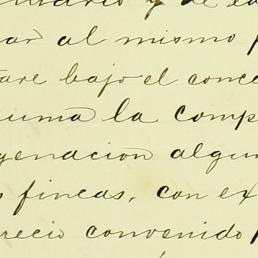 y de
ar al mismo
tare bajo el conce
uma la comp
genacion algun
s fincas, con ex
recio convenido